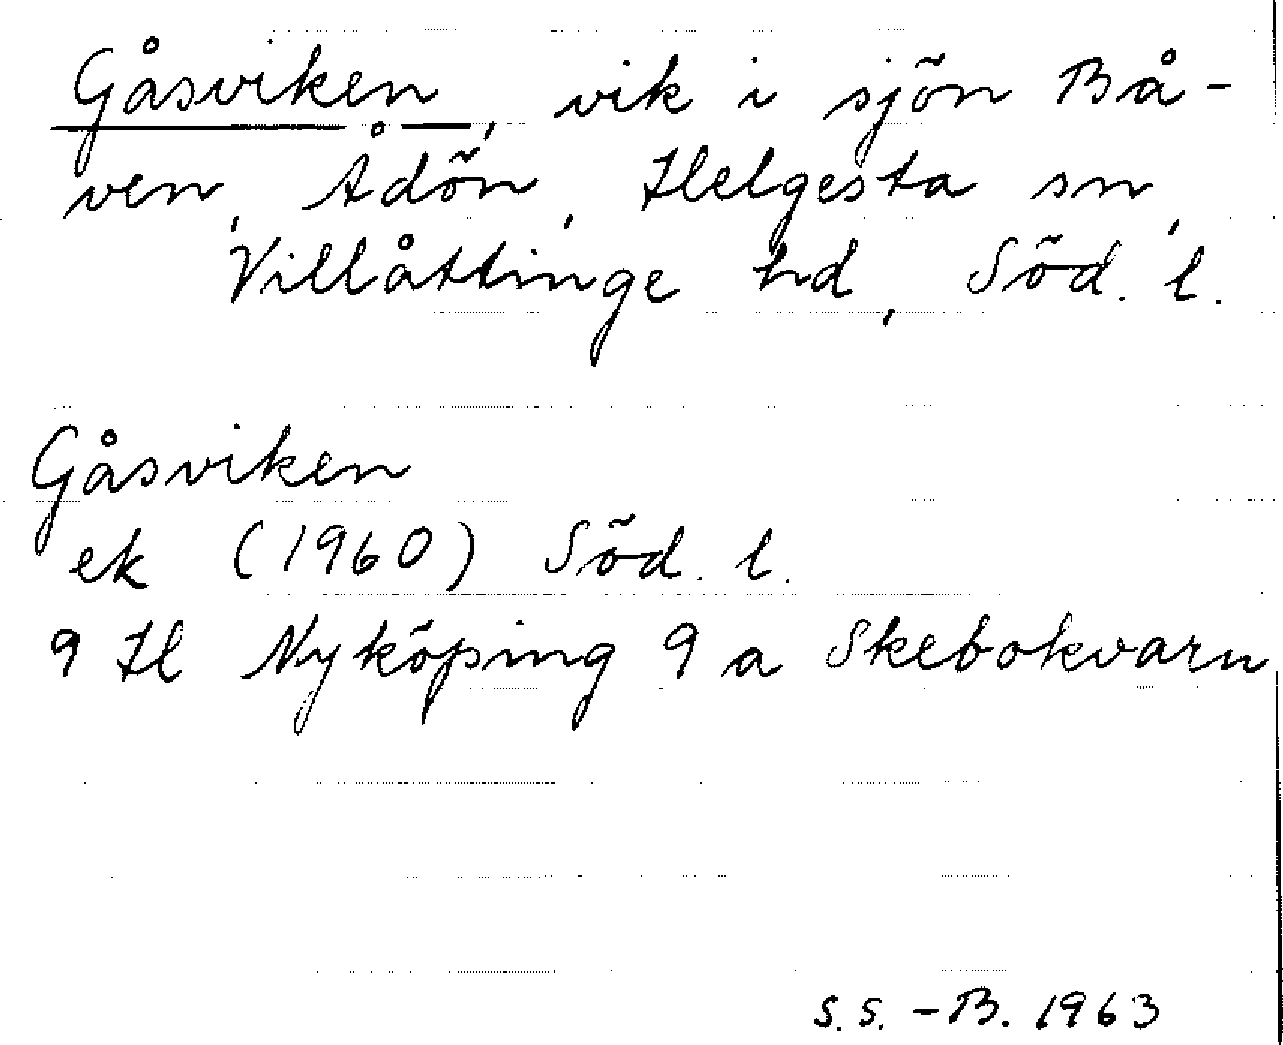 Gåsviken, vik i sjön Bå-
ven, Ådön, Helgesta sn,
Villåttinge hd, Söd. l.
Gåsviken
ek (1960) Söd. l.
9 H Nyköping 9 a Skebokvarn
S.S. -B. 1963